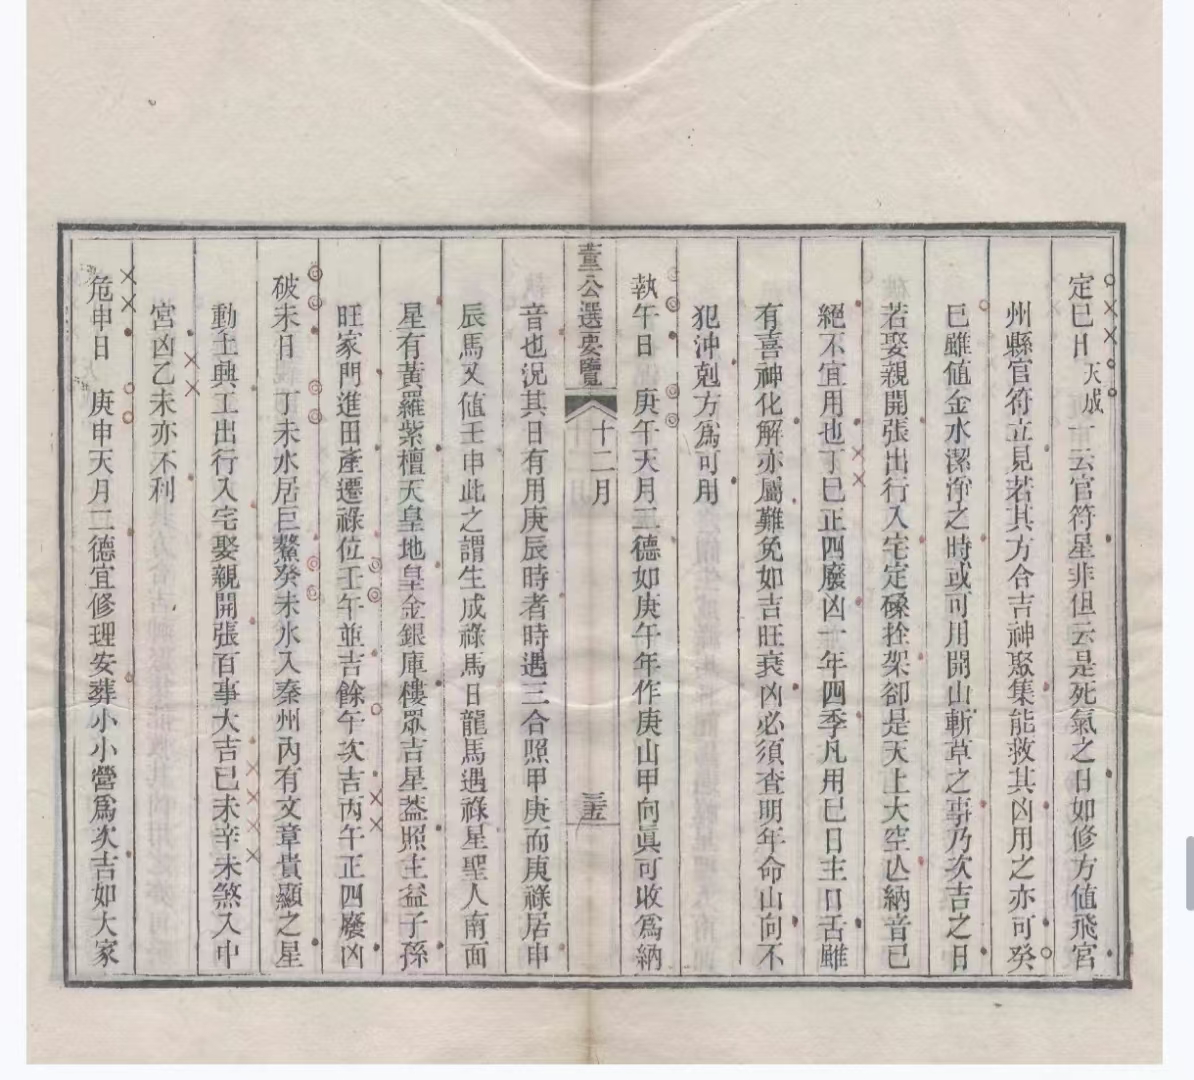 定巳日 天成 一云官符星非但云是死氣之日如修方值飛宮
州縣官符立見若其方合吉神聚集能救其凶用之亦可癸
巳雖値金水潔淨之時或可用開山斬草之事乃次吉之日
若娶親開張出行入宅定磉拴架卻是天上大空亡納音已
絕不宜用也丁巳正四廢凶一年四季凡用巳日主口舌雖
有喜神化解亦屬難免如吉旺衰凶必須査明年命山向不
犯沖剋方爲可用
執午日 庚午天月二德如庚午年作庚山甲向眞可收爲納
董公選要覽 十二月 三五
音也況其日有用庚辰時者時遇三合照甲庚而庚祿居申
辰馬又值壬申此之謂生成祿馬日龍馬遇祿星聖人南面
星有黃羅紫檀天皇地皇金銀庫樓眾吉星葢照主益子孫
旺家門進田產遷祿位壬午並吉餘午次吉丙午正四廢凶
破未日 丁未水居巨鰲癸未水入秦州內有文章貴顯之星
動土興工出行入宅娶親開張百事大吉已未辛未煞入中
宮凶乙未亦不利
危申日 庚申天月二德宜修理安葬小小營爲次吉如大家